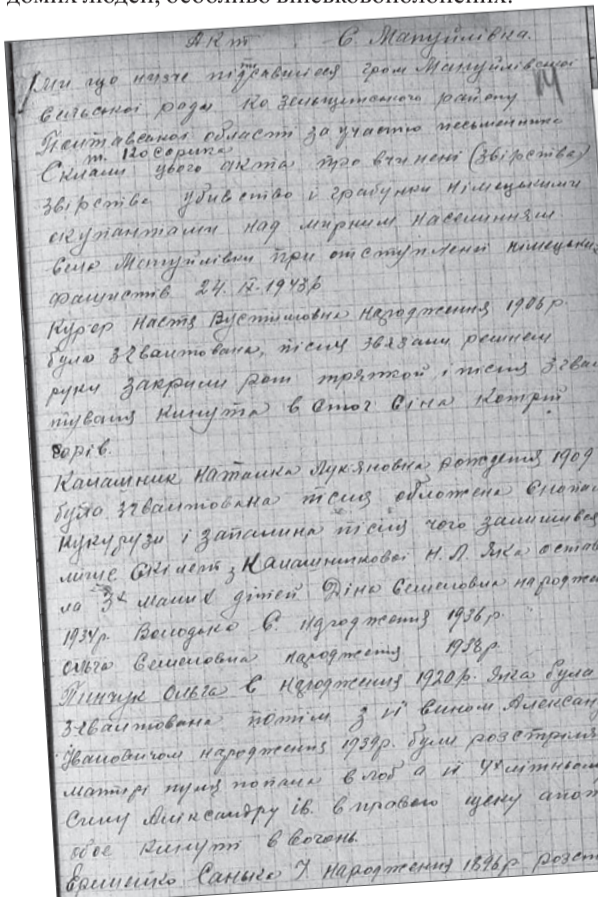 домих людей, особливо військовополонених.
Акт С. Мануйлівка.
14
Ми що низче підписавшіеся гром Мануйлівської
сільської ради Козельщинського району
Полтавської області за участю письменника
т. Косарика
Склали цього акта про вчинені (звірства)
звірства убивство і грабунки німецькими
окупантами над мирним населенням
села Мануйлівки при отступленні німецьких
фашистів 24. ІХ-1943р
Настя Вустимовна народження 1906 р.
була згвалтована, після звязали ременем
руки закрили рот тряпкой і після згвал
тування кинута в стог сіна котрий
горів.
Калашник Наталка Лукяновна рождения 1909
була згвалтована після обложена снопами
кукурузи і запалина після чого залишився
лише скілет з Калашникової Н. Л. яка остави
ла 3х малих дітей Діна Семеновна народжен
1934р. Володька С. народження 1936 р.
Ольга Семеновна народження 1938р.
Пинчук Ольга Є народження 1920р. яка була
згвалтована потім з її сином Александ
Івановичом народження 1939р. були розстріляні
матері пуля попала в лоб а її 4х літньому
сину Александру Ів. в праваю щеку а потім
обое кинуті в вогонь.
Санька І. народження 1896р розст